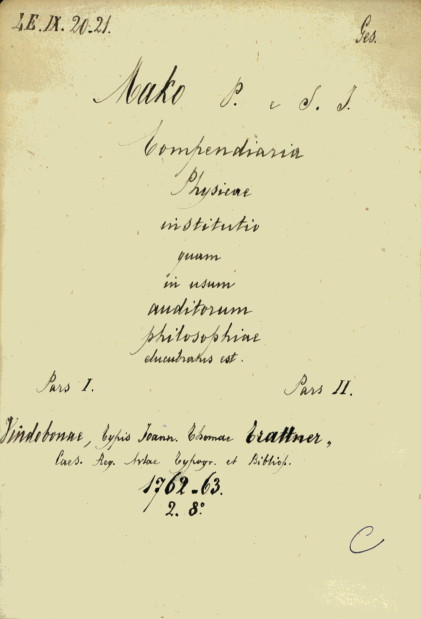 4E.IX. 20-21.
Ges.
Mako P. e S. J.
Compendiaria
Physicae
institutio
quam
in usum
auditorum
philosophiae
elucubratus est.
Pars I. Pars II.
Vindobonae, typis Joann. Thomae Trattner,
Caes. Reg. Aulae Typogr. et Bibliop.
1762-63.
2. 8°
C